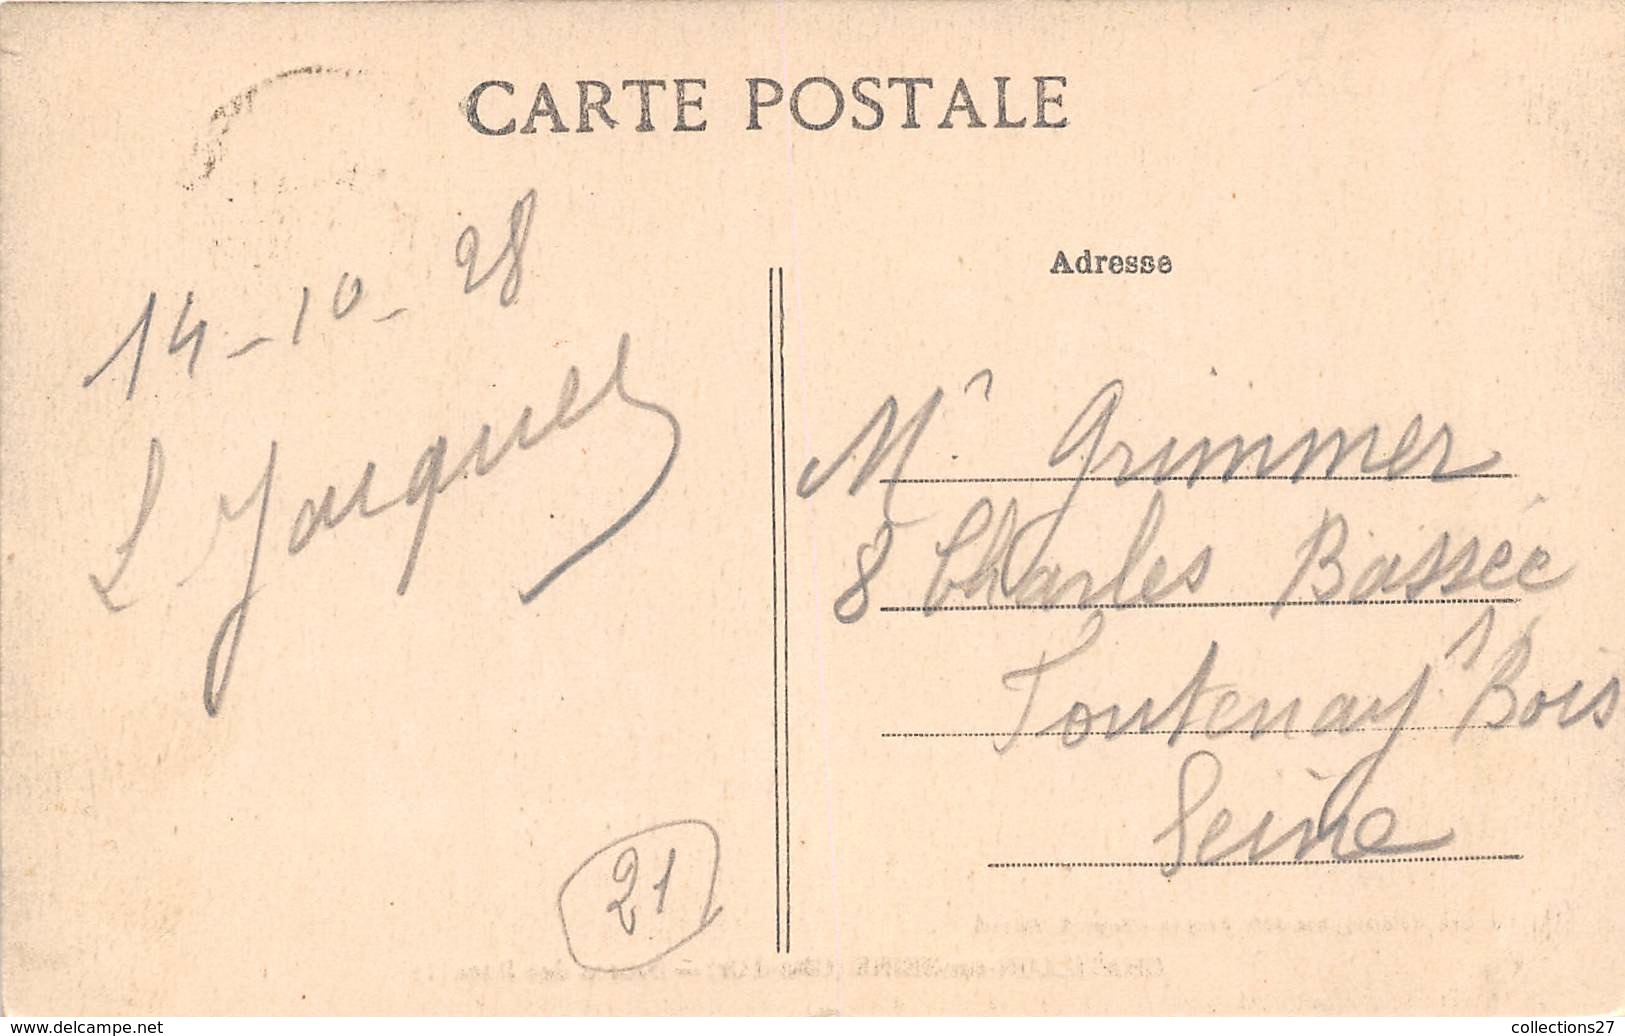 CARTE POSTALE
14-10-28
L Jacques
Adresse
Mr Grimmer
8 Charles Bassée
Fontenay s Bois
Seine
21
collections27